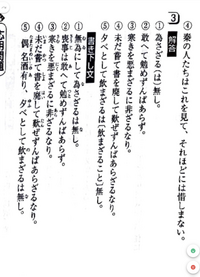 ④ 秦の人たちはこれを見て、それほどには惜しまない。
3
解答
① 為さざる〔は〕無し。
② 敢へて勉めずんばあらず。
③ 寒きを悪まざるに非ざるなり。
④ 未だ嘗て書を廃して歎ぜずんばあらざるなり。
⑤ 夕べとして飲まざるは〔飲まざること〕無し。
書き下し文
① 無為にして為さざるは無し。
② 喪事は敢へて勉めずんばあらず。
③ 寒きを悪まざるに非ざるなり。
④ 未だ嘗て書を廃して歎ぜずんばあらざるなり。
⑤ 偶名酒有り、夕べとして飲まざるは無し。